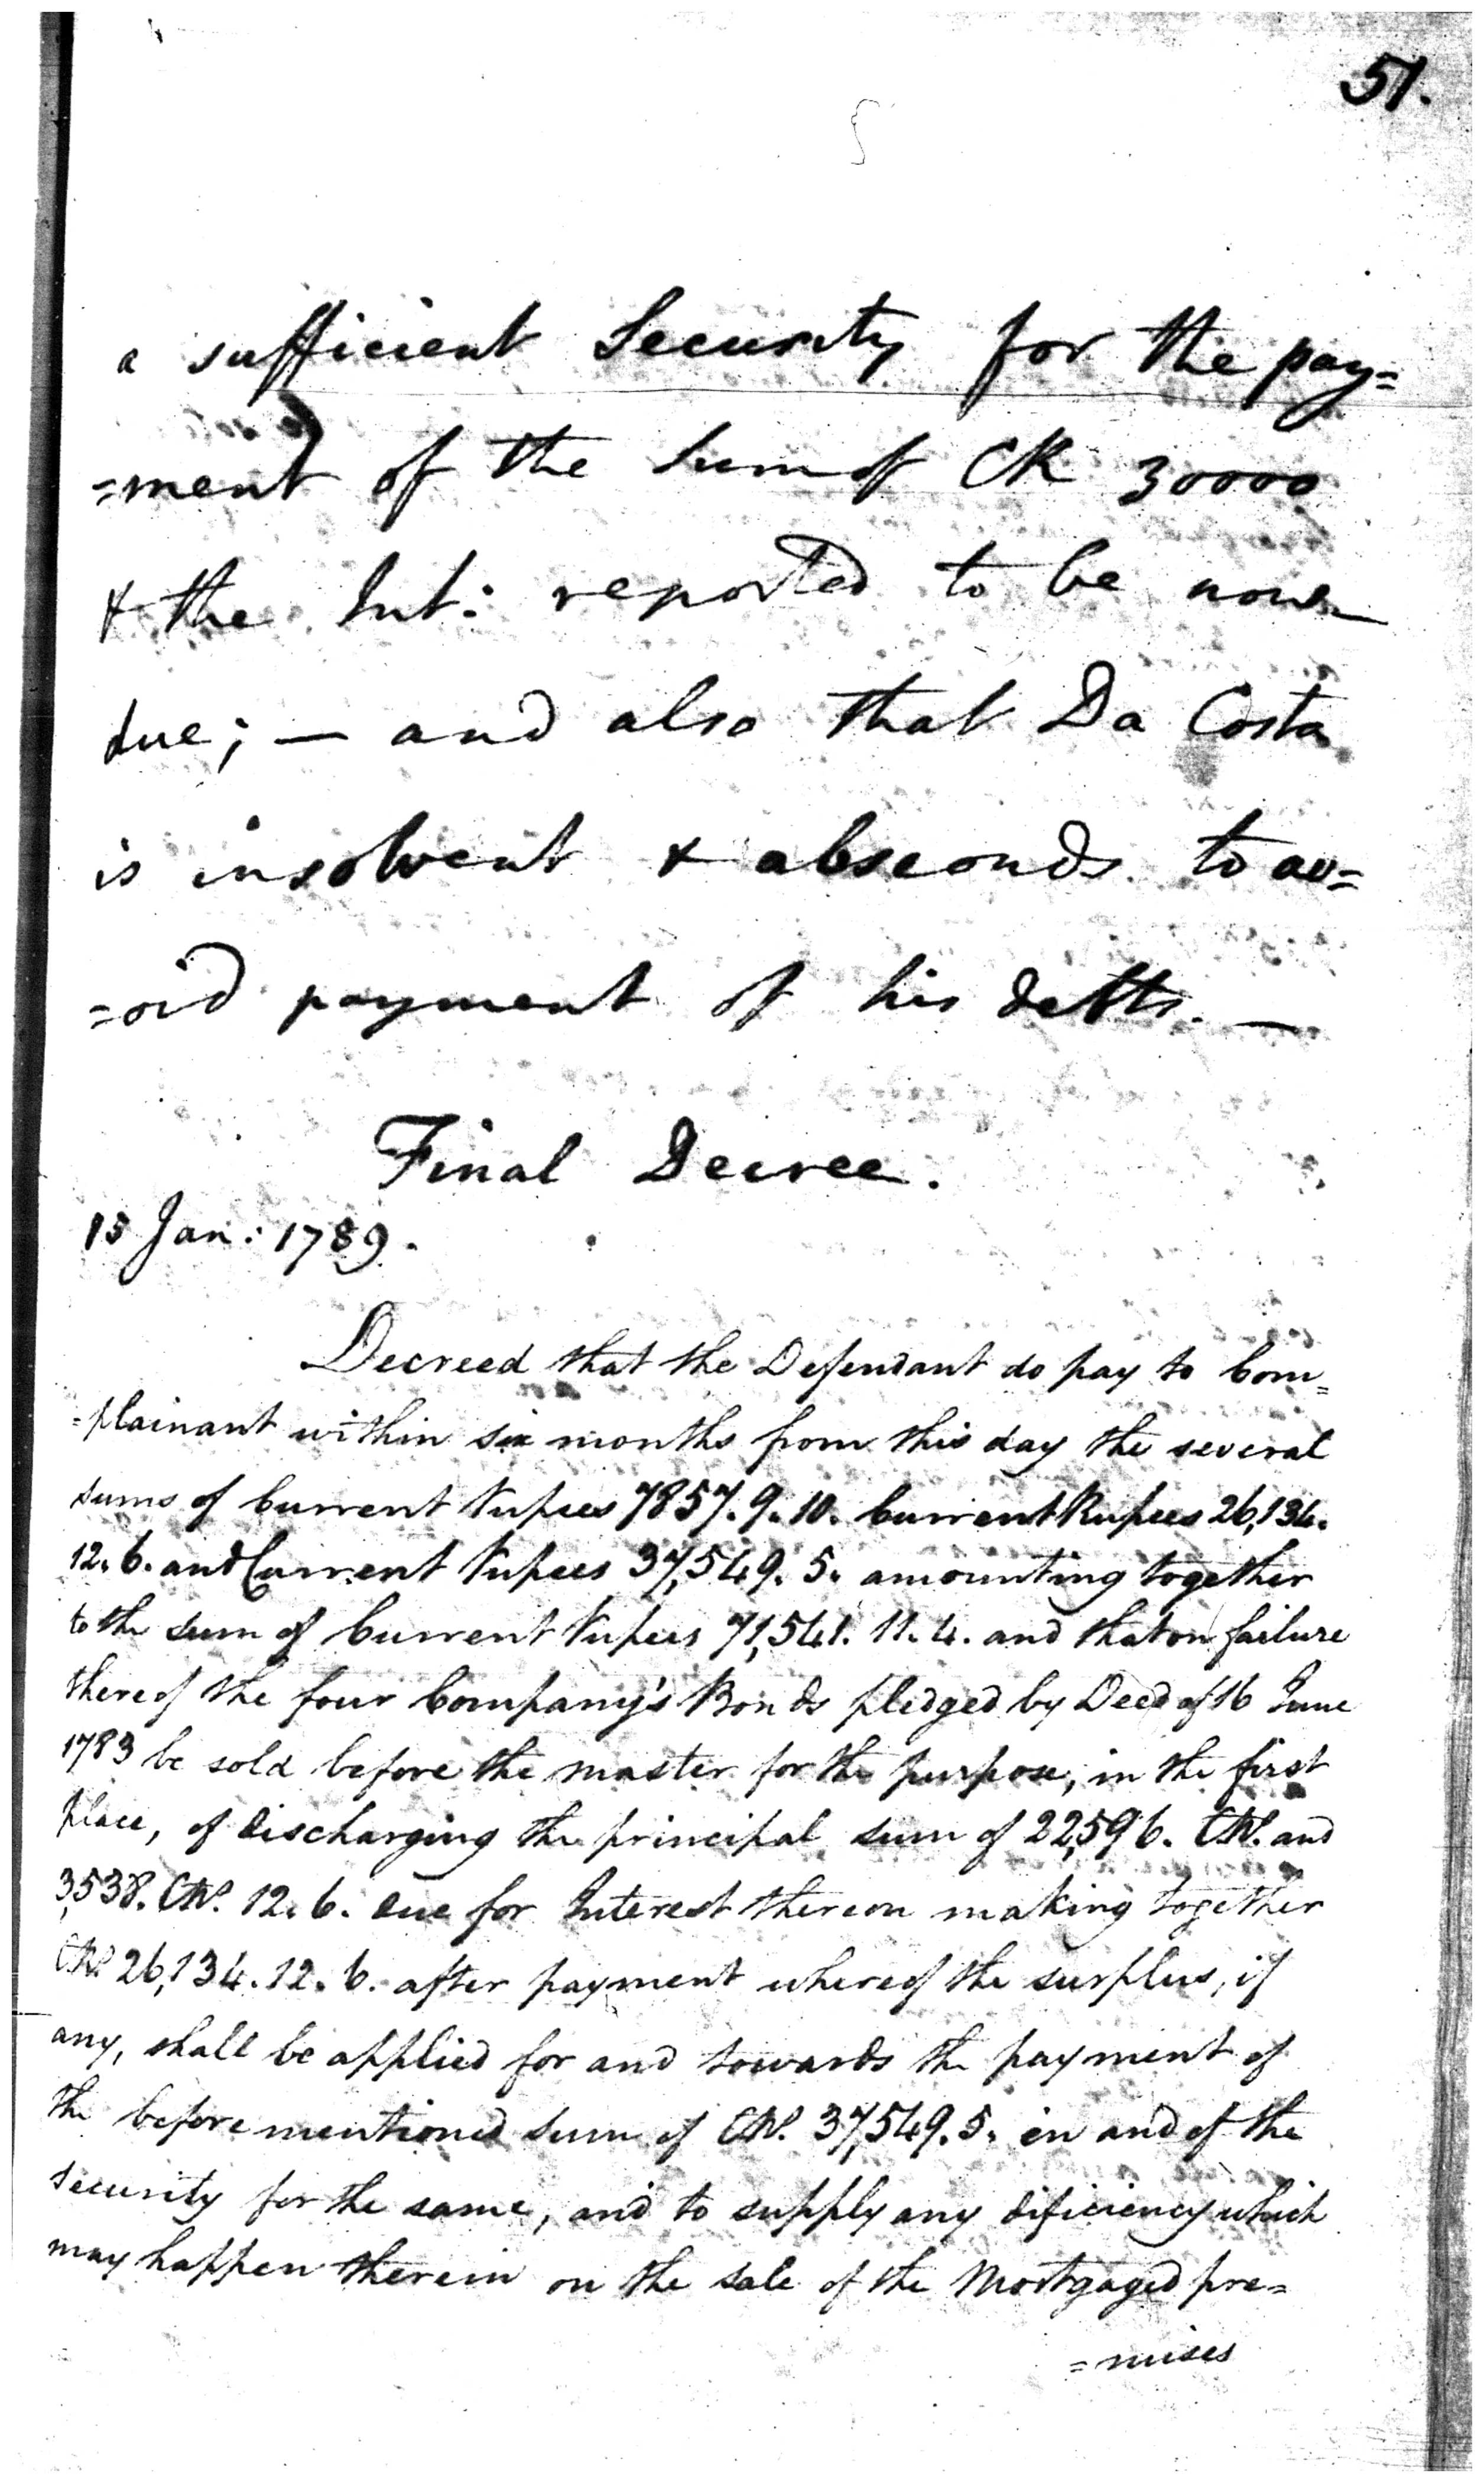 51.
a sufficient Security for the pay=
=ment of the Sum of CR 30000
& the Int: reported to be now
due; — and also that Da Costa
is insolvent & absconds to av=
=oid payment of his debts. —
Final Decree.
15 Jan: 1789.
Decreed that the Defendant do pay to Com=
=plainant within six months from this day the several
sums of Current Rupees 7857. 9. 10. Current Rupees 26,134.
12. 6. and Current Rupees 37,549. 5. amounting together
to the sum of Current Rupees 71,541. 11. 4. and that on failure
thereof the four Company's Bonds pledged by Deed of 16 June
1783 be sold before the master for the purpose, in the first
place, of discharging the principal sum of 22,596. CRs. and
3,538. CRs. 12. 6. due for Interest thereon making together
CRs. 26,134. 12. 6. after payment whereof the surplus, if
any, shall be applied for and towards the payment of
the before mentioned sum of CRs. 37,549. 5. in and of the
security for the same, and to supply any dificiency which
may happen therein on the sale of the Mortgaged pre=
=mises